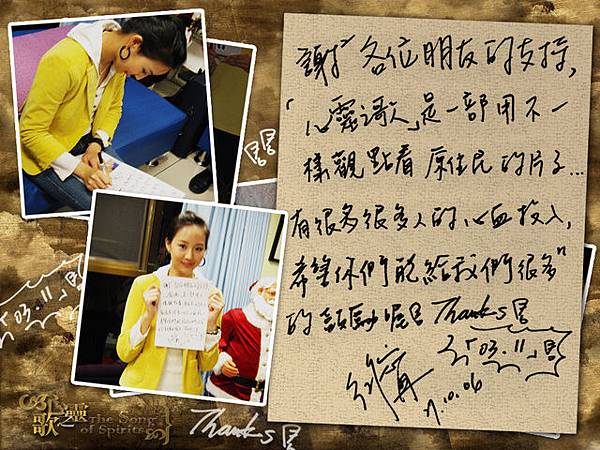 謝謝各位朋友的支持,
「心靈之歌」是一部用不一
樣觀點看原住民的片子...
有很多很多人的心血投入,
希望你們能給我們很多
的鼓勵喔 Thanks
03.11
10.06
03.11
The Song
of Spirits
Thanks